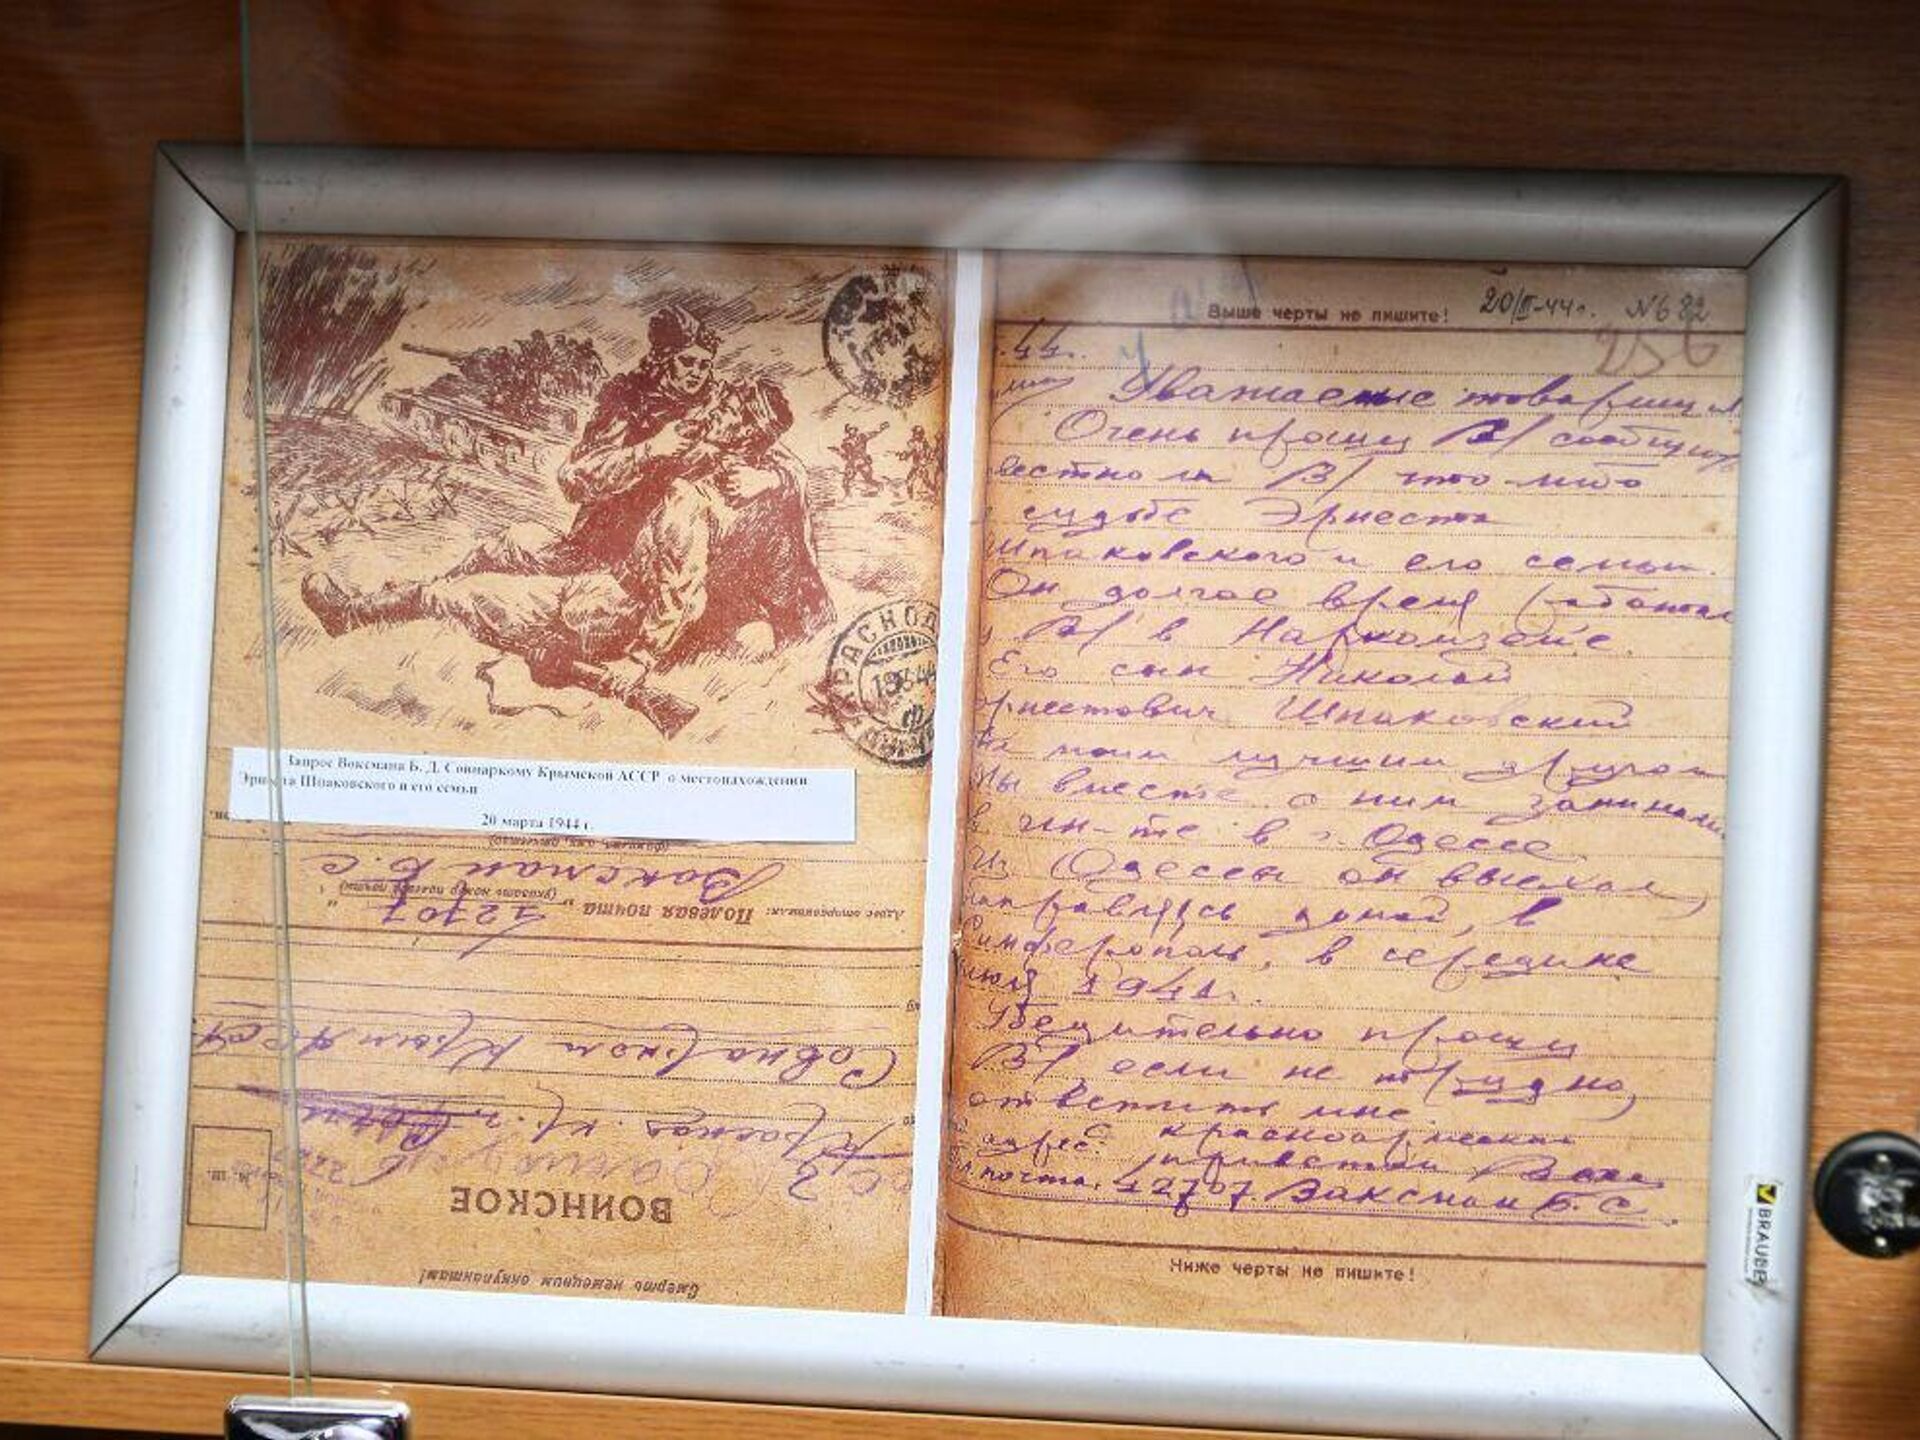 КРАСНОД
Запрос Воксмана Б. Д. Совнаркому Крымской АССР о местонахождении
Эрнеста Шпаковского и его семьи
20 марта 1944 г.
Ваксман Б. С
(указать номер полевой почты)
Адрес отправителя: Полевая почта „ 42707 "
Совнарком Крым АССР
Краснод. кр. г.
ВОИНСКОЕ
Смерть немецким оккупантам!
Выше черты не пишите! 20/III-44 г. № 682
256
44 г.
Уважаемые товарищи
Очень прошу Вас сообщить
вестно ли Вас что-либо
судьбе Эрнеста
Шпаковского и его семьи.
Он долгое время работал
Вас в Наркомземе.
Его сын Николай
Эрнестович Шпаковский
моим лучшим другом
Мы вместе с ним занимались
в ин-те в г. Одессе
Из Одессы он выехал,
направляясь домой, в
Симферополь, в середине
июля 1941 г.
Убедительно прошу
Вас если не трудно,
ответить мне.
адрес: красноармейским
приветом
почта. 42707. Ваксман Б. С.
Ниже черты не пишите!
BRAUBERG